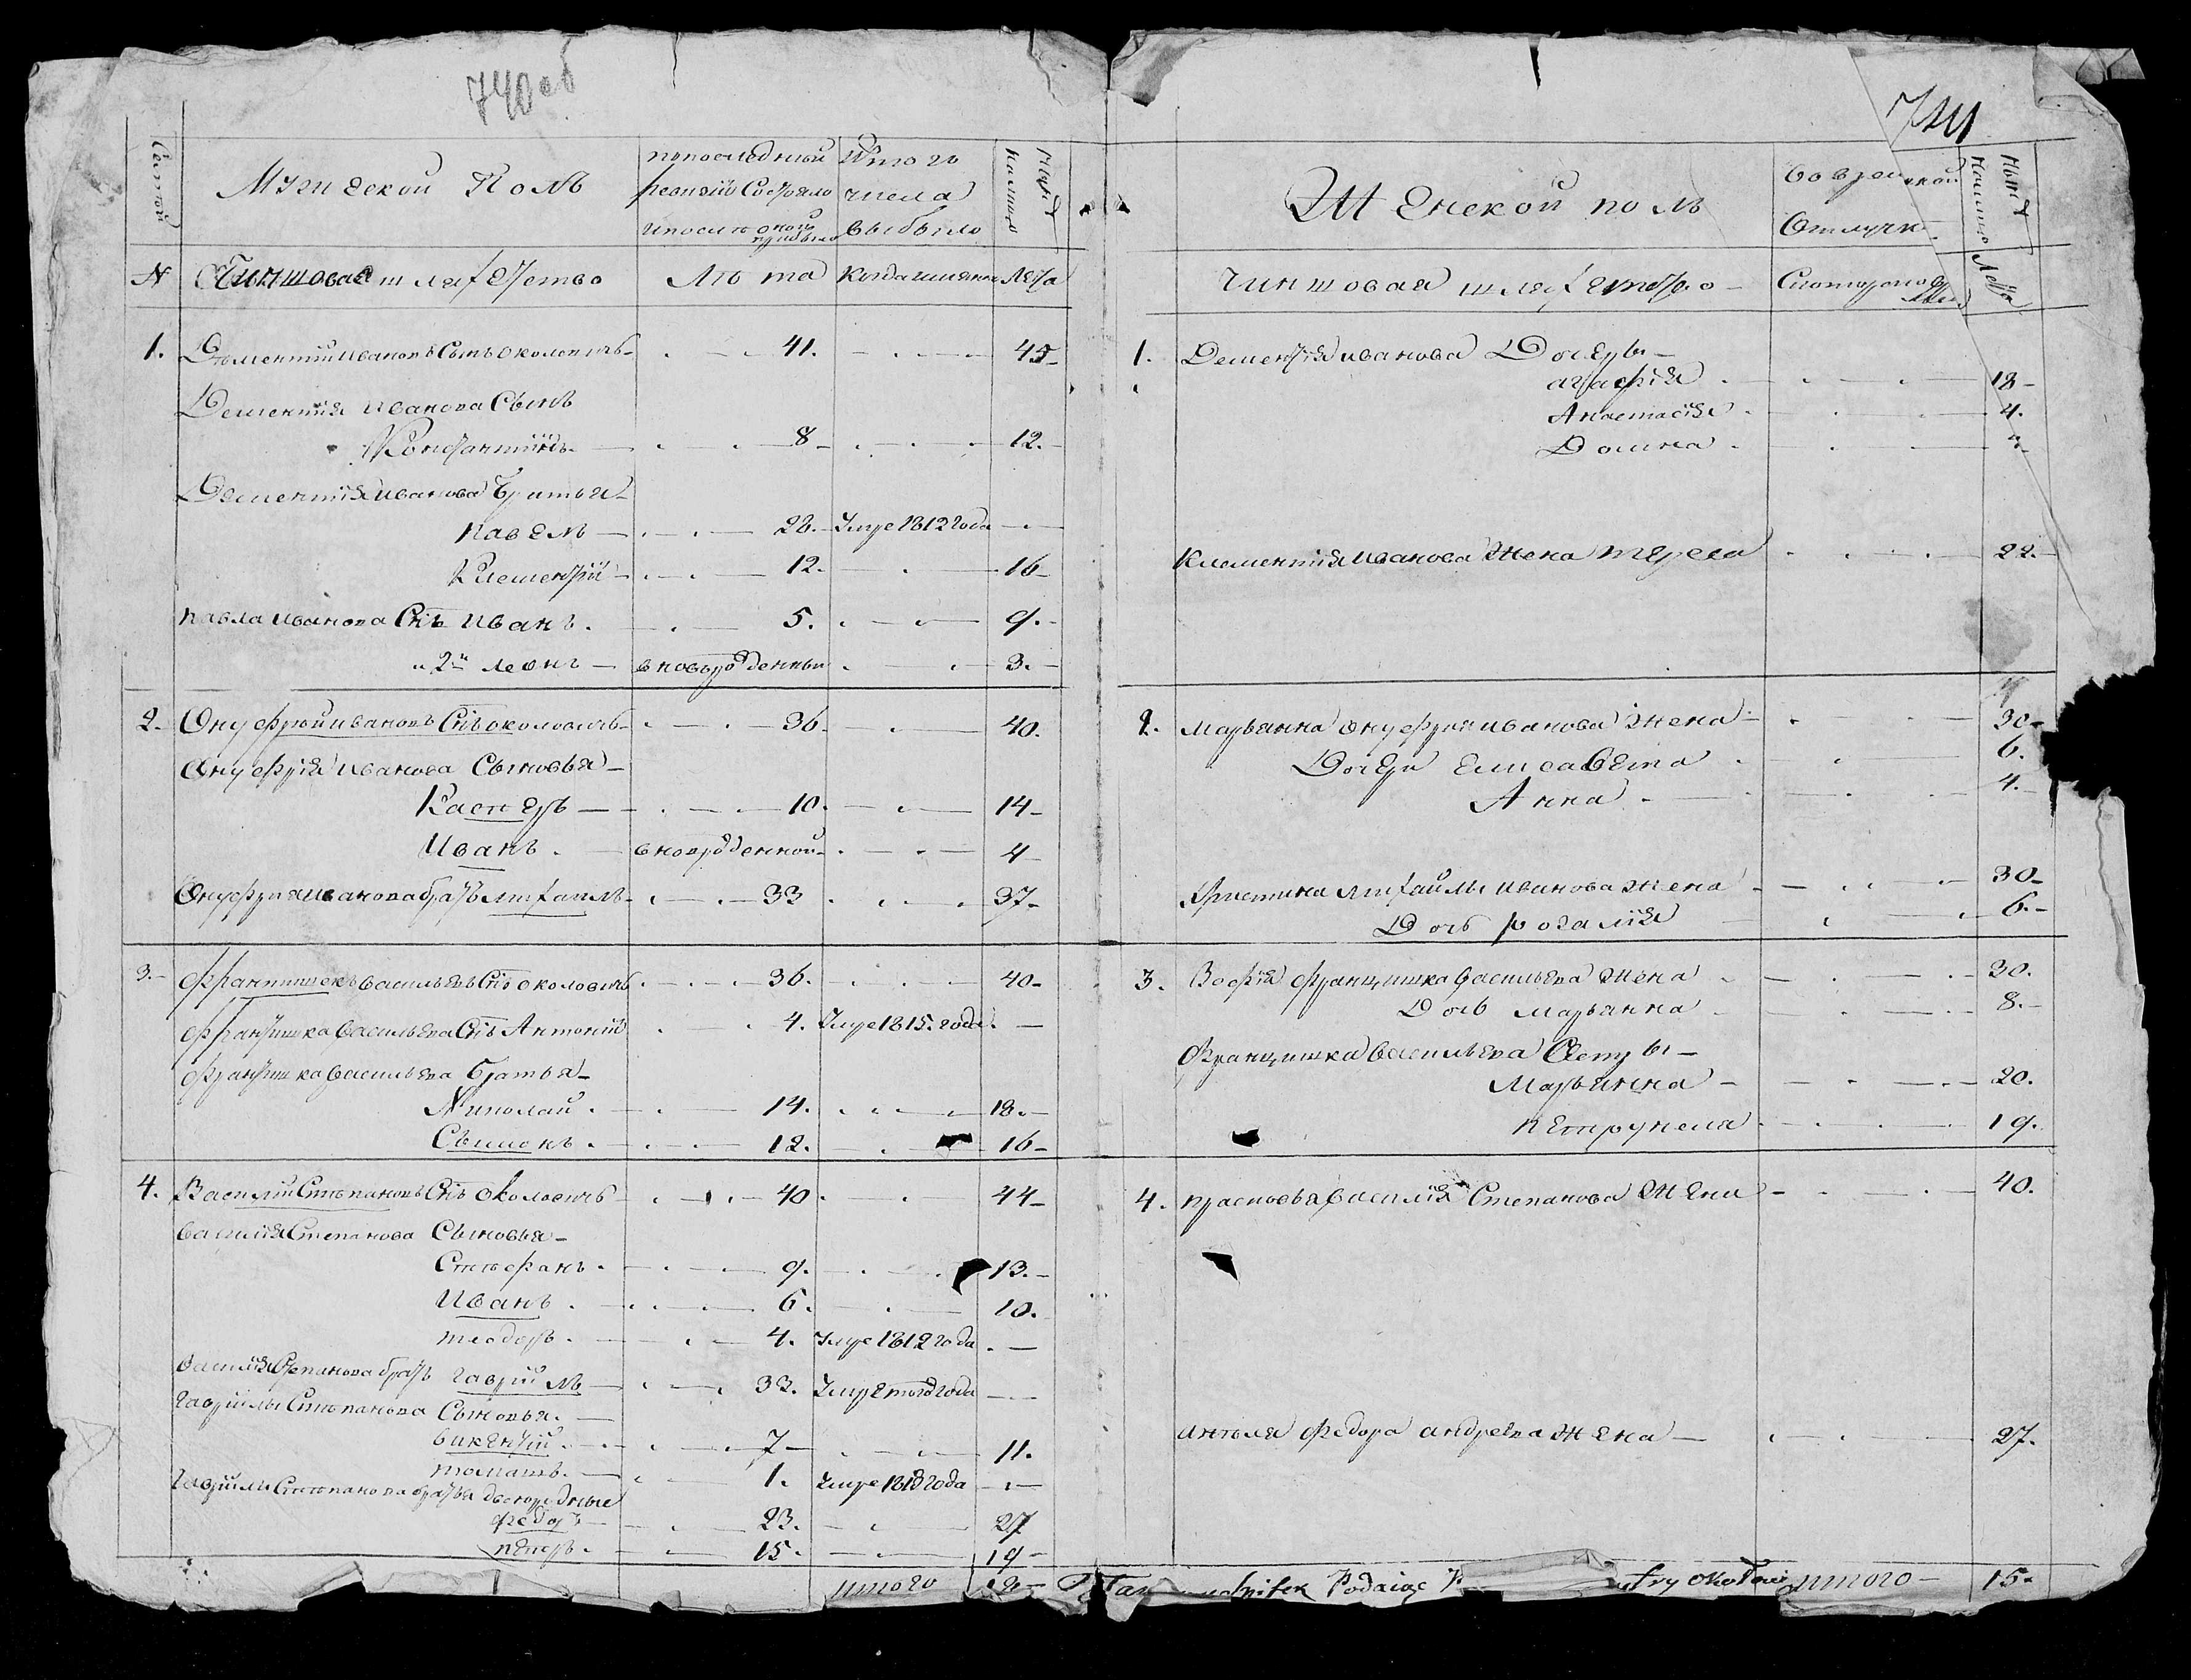 740 об
Семей
Мужеской Полъ
попоследней
ревизiи Состояло
ипосле оной
прибыло
Изтого
числа
выбыло
Ныне
налицо
N
Чиншовая шляхетство
Лѣта
Когда имянно
Лѣта
1. Дементiй ивановъ Сынъ околовичъ 41. 45
Дементiя Иванова Сынъ
Константiнъ 8 12.
Дементiя иванова Братья
павелъ 28. Умре 1812 года
Клементiй 12. 16
павла иванова Снъ иванъ. 5. 9.
2й леонъ вновърожденны 3.
2. Онуфрiй ивановъ Снъ околовичъ 36. 40.
Онуфрiя иванова Сыновья
Касперъ 10. 14
Иванъ. вноврожденной 4
Онуфрия иванова братъ михаилъ 33 37
3. францишекъ васильевъ Снъ околовичъ 36. 40
францишка васильева Снъ Антонiй 4. Умре 1815. года
францишка васильева Братья
Николай. 14. 18.
Сымонъ. 12. 16
4. Василiй Степановъ Снъ околовичъ 40 44
василiя Степанова Сыновья
Стефанъ. 9. 13.
Иванъ. 6. 10.
теодоръ. 4. Умре 1812 года
василiя Степанова братъ гаврiилъ 33. Умре того года
гаврiилы Степанова Сыновья.
викентiй. 7 11.
томашъ. 1. Умре 1813 года
гаврiилы Степанова братья двоюродные
федоръ 23. 27
петръ. 15. 19
итого
741
Женской полъ
во временной
Отлучке
Ныне
налицо
чиншовая шляхетство
Скоторого времени
Лѣта
1. Дементiя иванова Дочеры
агафiя 18
Анастасiя 4.
Домна
Клементiя иванова жена тереса 22.
2. марьянна онуфрия иванова жена 30
Дочери Елисавета 6.
Анна 4.
Христина михаилы иванова жена 30
Дочь розалiя 6.
3. Зофiя францишка васильева жена 30.
Дочь марьянна 8.
францишка васильева Сестры
Марьянна 20.
петрунеля 19.
4. прасковья василiя Степанова жена 40.
анъеля федора андреева жена 27.
Podaiąc
итого 15.